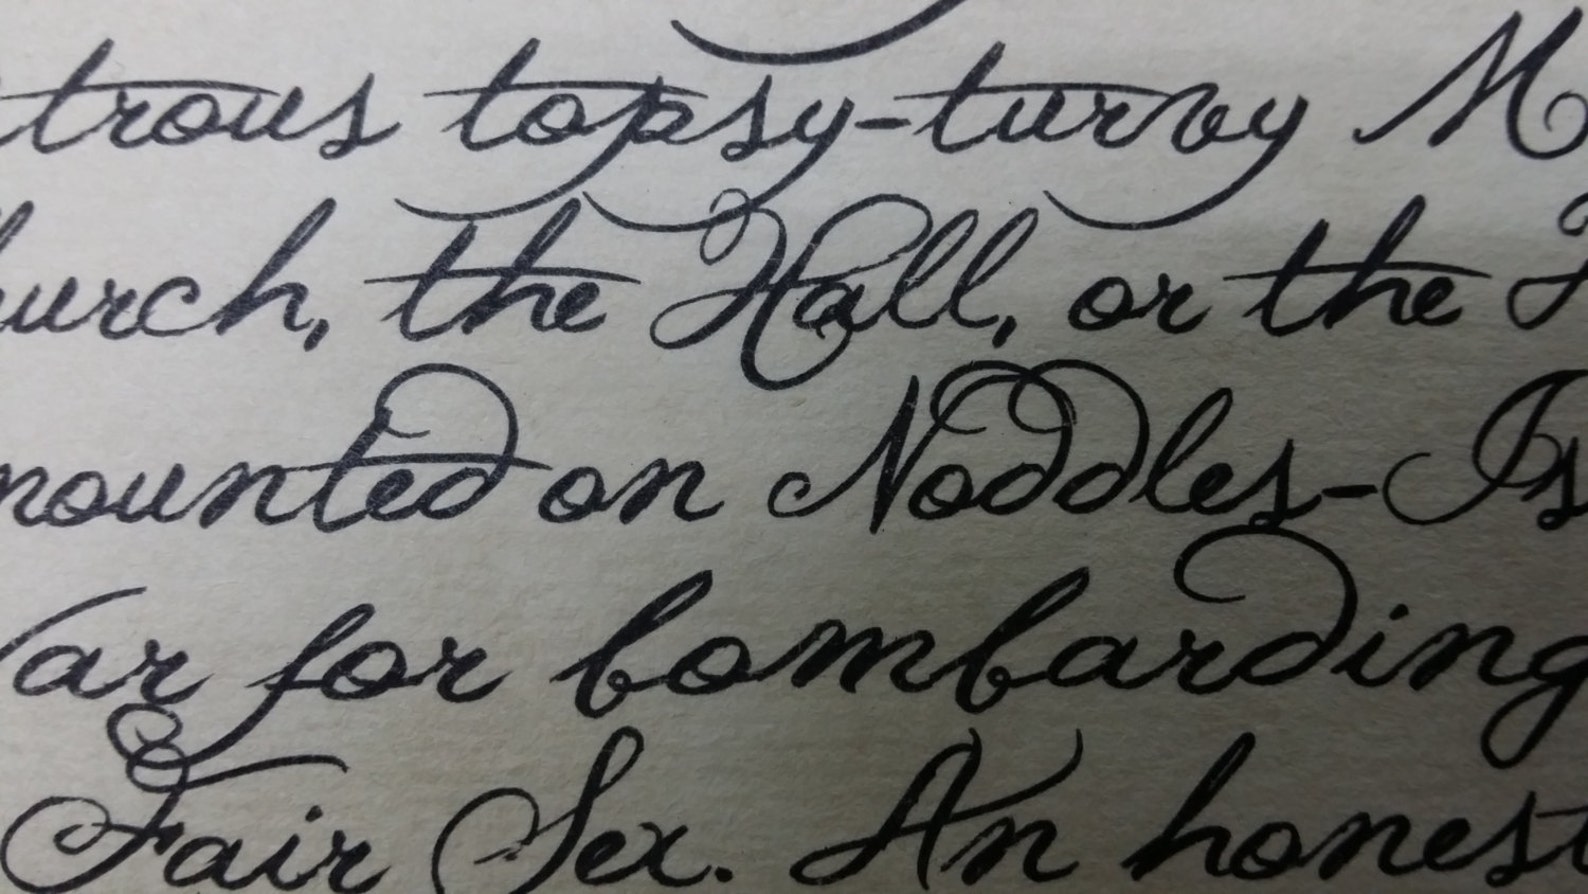 trous topsy-turvy M
urch, the Hall, or the
mounted on Noddles-Is
ar for bombarding
Fair Sex. An honest